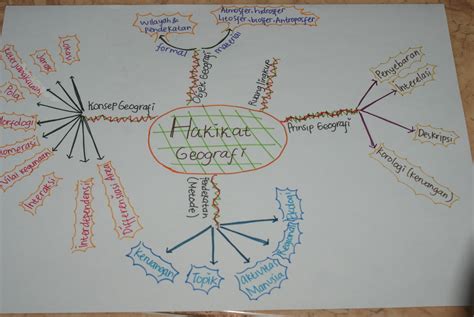 Wilayah &
Pendekatan
Atmosfer, hidrosfer
Litosfer, biosfer, Antroposfer
formal
material
Objek Geografi
Ruang lingkup
Lokasi
Jarak
Pola
Morfologi
Nilai kegunaan
Interaksi
Interdependensi
Konsep Geografi
Hakikat
Geografi
Prinsip Geografi
Penyebaran
Interelasi
Deskripsi
Korologi (keruangan)
Pendekatan
(Metode)
Keruangan
Topik
Aktivitas
Manusia